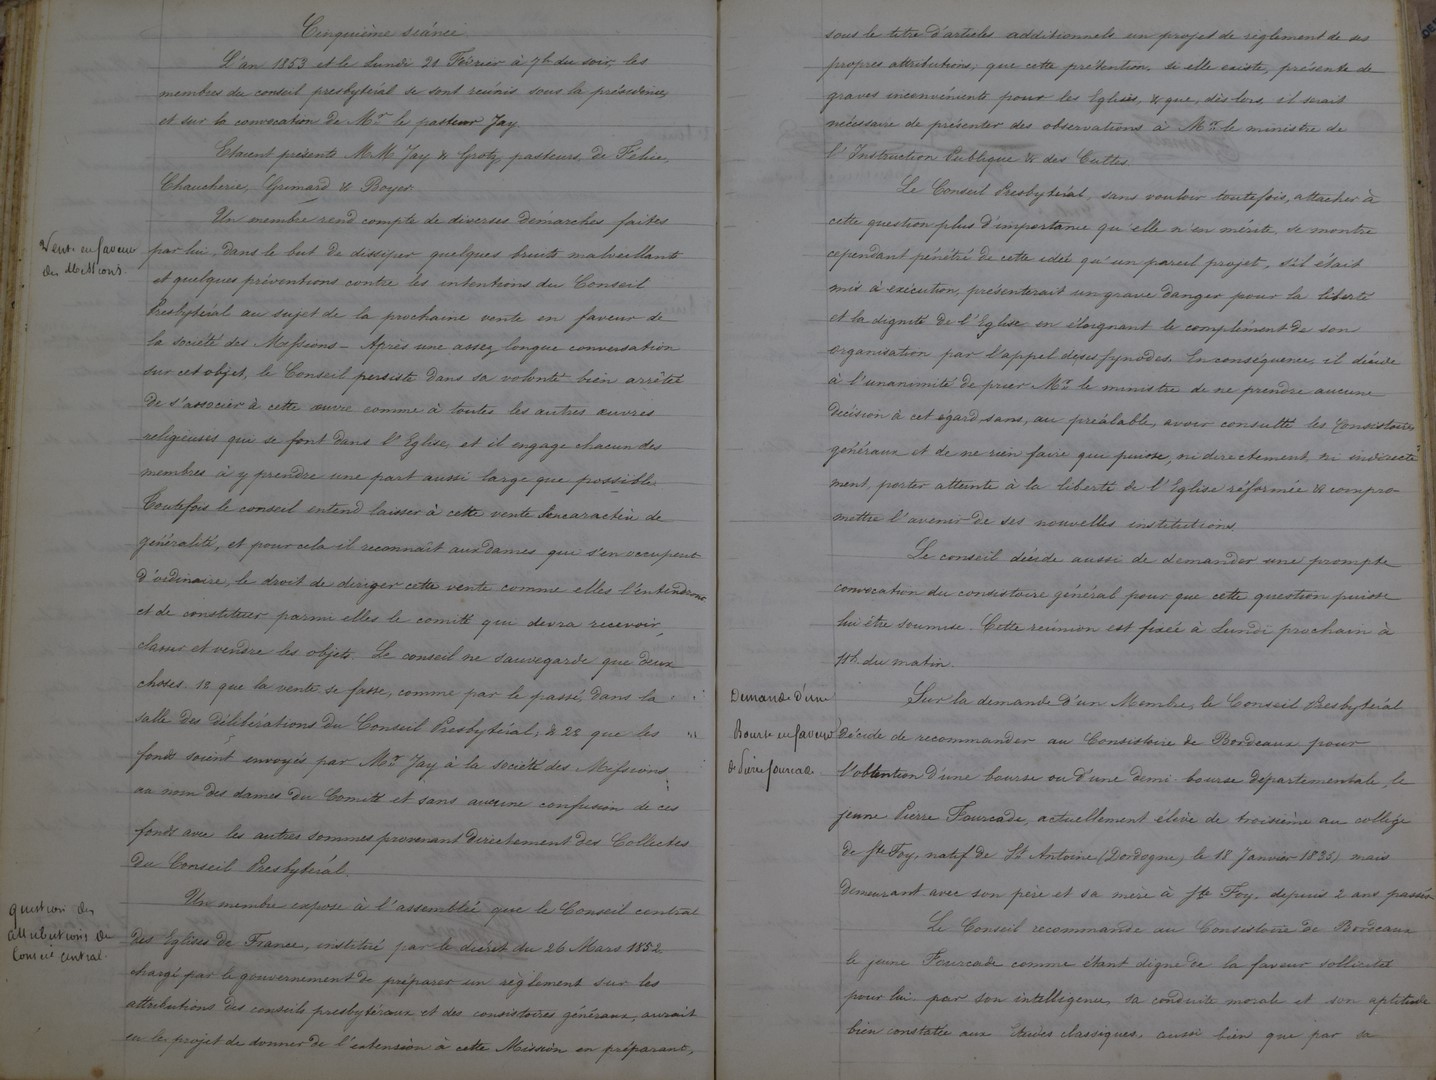 Cinquième séance
L'an 1853 et le Lundi 21 Février à 7h du soir, les
membres du conseil presbytéral se sont réunis sous la présidence,
et sur la convocation de Mr le pasteur Jay
Etaient présents M.M. Jay & Grotz, pasteurs, de Félice,
Chaucherie, Grimard & Boyer.
Un membre rend compte de diverses démarches faites
Vente en faveur
des Missions.
par lui, dans le but de dissiper quelques bruits malveillants
et quelques préventions contre les intentions du Conseil
Presbytéral au sujet de la prochaine vente en faveur de
la société des Missions - Après une assez longue conversation
sur cet objet, le Conseil persiste dans sa volonté bien arrêtée
de s'associer à cette œuvre comme à toutes les autres œuvres
religieuses qui se font dans l'Eglise, et il engage chacun des
membres à y prendre une part aussi large que possible.
Toutefois le conseil entend laisser à cette vente son caractère de
généralité, et pour cela il reconnaît aux dames qui s'en occupent
d'ordinaire, le droit de diriger cette vente comme elles l'entendront
et de constituer parmi elles le comité qui devra recevoir,
classer et vendre les objets. Le conseil ne sauvegarde que deux
choses. 1º que la vente se fasse, comme par le passé, dans la
salle des délibérations du Conseil Presbytéral; & 2º que les
fonds soient envoyés par Mr Jay à la société des Missions,
au nom des dames du Comité et sans aucune confusion de ces
fonds avec les autres sommes provenant directement des Collectes
du Conseil Presbytéral.
Question des
attributions du
Conseil central.
Un membre expose à l'assemblée que le Conseil central
des Eglises de France, institué par le décret du 26 Mars 1852
chargé par le gouvernement de préparer un règlement sur les
attributions des conseils presbytéraux et des consistoires généraux, aurait
eu le projet de donner de l'extension à cette Mission en préparant,
sous le titre d'articles additionnels un projet de règlement de ses
propres attributions; que cette prétention, si elle existe, présente de
graves inconvénients pour les Eglises, & que, dès lors, il serait
nécessaire de présenter des observations à Mr le ministre de
l'Instruction Publique & des Cultes.
Le Conseil Presbytéral, sans vouloir toutefois, attacher à
cette question plus d'importance qu'elle n'en mérite, se montre
cependant pénétré de cette idée qu'un pareil projet, s'il était
mis à exécution, présenterait un grave danger pour la liberté
et la dignité de l'Eglise en éloignant le complément de son
organisation par l'appel de ses synodes. En conséquence, il décide
à l'unanimité de prier Mr le ministre de ne prendre aucune
décision à cet égard sans, au préalable, avoir consulté les Consistoires
généraux et de ne rien faire qui puisse, ni directement, ni indirecte-
ment, porter atteinte à la liberté de l'Eglise réformée & compro-
mettre l'avenir de ses nouvelles institutions.
Le conseil décide aussi de demander une prompte
convocation du consistoire général pour que cette question puisse
lui être soumise. Cette réunion est fixée à Lundi prochain à
11h du matin.
Demande d'une
Bourse en faveur
de Pierre Fourcade
Sur la demande d'un Membre, le Conseil Presbytéral
décide de recommander au Consistoire de Bordeaux pour
l'obtention d'une bourse ou d'une demi bourse départementale, le
jeune Pierre Fourcade, actuellement élève de troisième au collège
de Ste Foy, natif de St Antoine (Dordogne) le 18 Janvier 1835) mais
demeurant avec son père et sa mère à Ste Foy, depuis 2 ans passés
Le Conseil recommande au Consistoire de Bordeaux
le jeune Fourcade comme étant digne de la faveur sollicitée
pour lui par son intelligence, sa conduite morale et son aptitude
bien constatée aux Etudes classiques, aussi bien que par sa